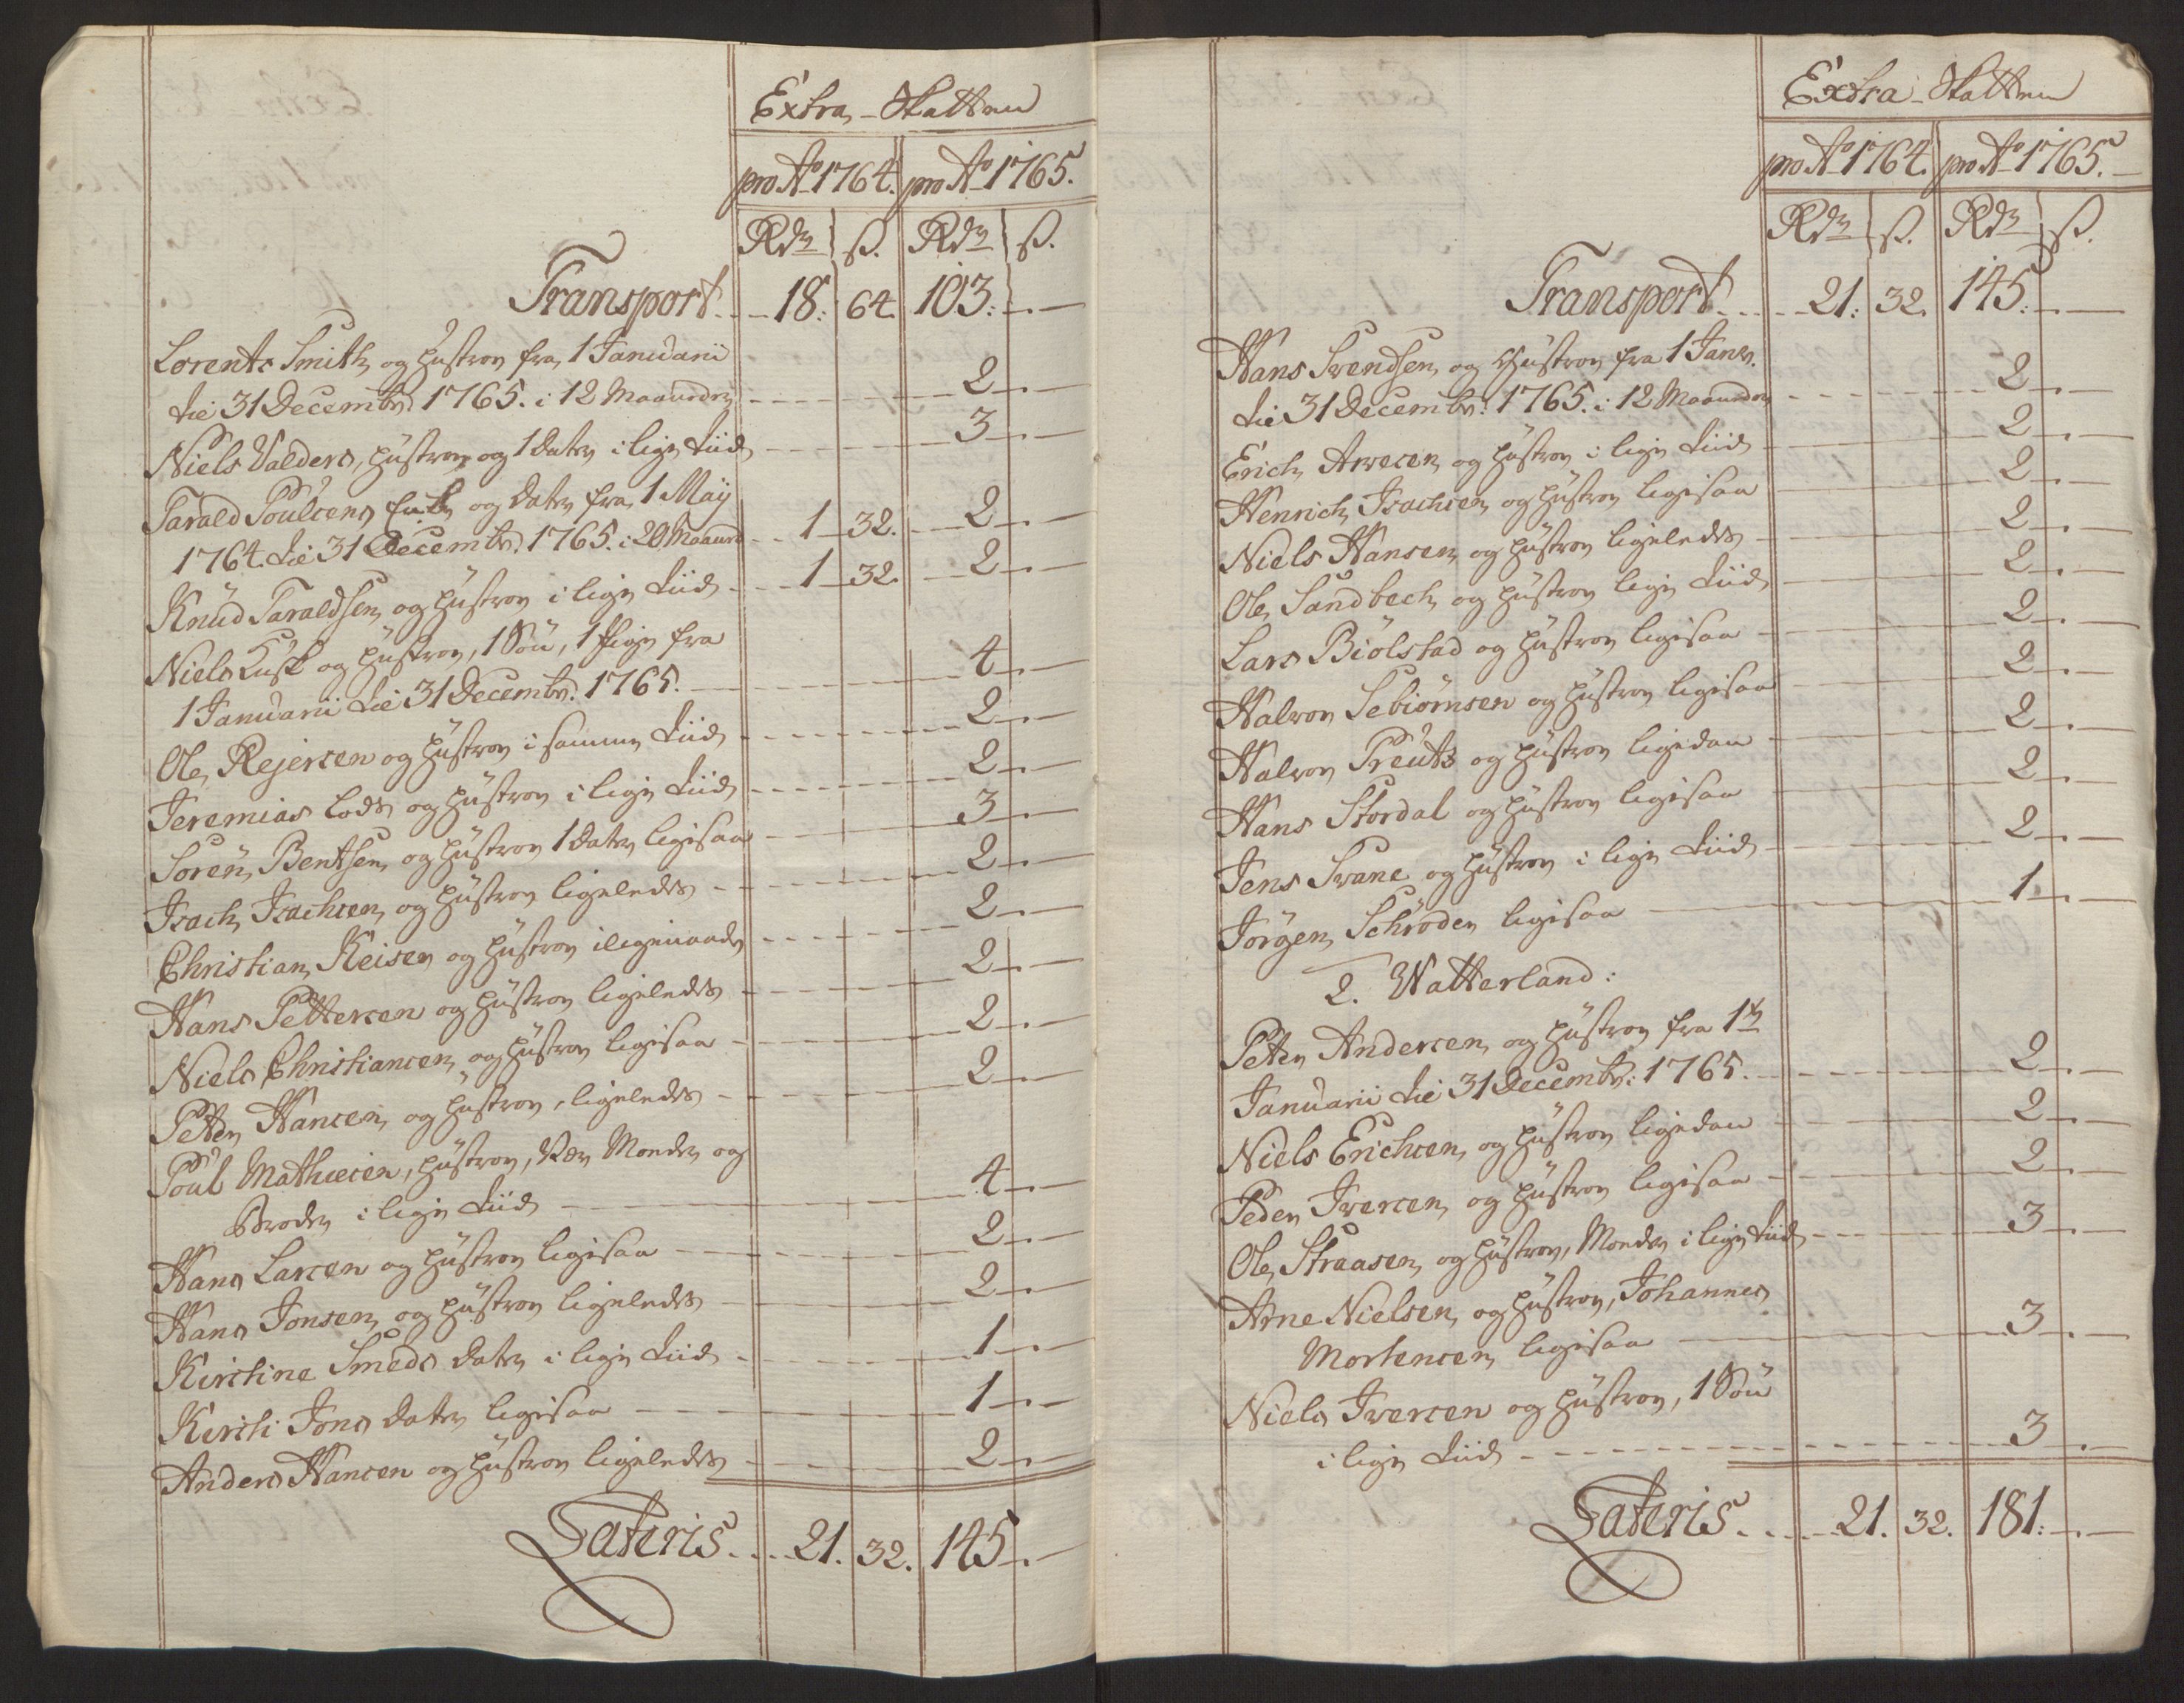 Extra-Skatten
pro Ao 1764. pro Ao 1765.
Rdr ß. Rdr ß.
Transport. . . 18: 64. 103: - . -
Lorents Smith og Hustrue fra 1 Januarii
til 31 Decembr: 1765. i 12 Maaneder 2 - . -
Niels Valders, Hustrue og 1 Dater i lige Tiid 3 - . -
Tarald Poulsens Enke og Dater fra 1 Maÿ
1764. til 31 Decembr: 1765. i 20 Maaned . . 1 - 32. 2 - . -
Knud Taraldsen og Hustrue i lige Tiid 1 - 32. 2 - . -
Niels Kusk og Hustrue, 1 Søn, 1 Pige fra
1 Januarii til 31 Decembr: 1765. 4 - . -
Ole Rejersen og Hustrue i samme Tiid 2 - . -
Jeremias Lods og Hustrue i lige Tiid 2 - . -
Soren Bentsen og Hustrue 1 Dater ligesaa 3 - . -
Isach Isachsen og Hustrue ligeledes 2 - . -
Christian Keiser og Hustrue i ligemaade 2 - . -
Hans Pettersen og Hustrue ligeledes 2 - . -
Niels Christiansen og Hustrue ligesaa 2 - . -
Petter Hansen og Hustrue, ligeledes 2 - . -
Poul Mathiesen, Hustrue, Moder og
Broder i lige Tiid 4 - . -
Hans Larsen og Hustrue ligesaa 2 - . -
Hans Jonsen og Hustrue ligeledes 2 - . -
Kirstine Smeds Dater i lige Tiid 1 - . -
Kirsti Jons Dater ligesaa 1 - . -
Anders Hansen og Hustrue ligeledes 2 - . -
Lateris. . . . 21. 32. 145 - . -
Extra-Skatten
pro Ao 1764. pro Ao 1765.
Rdr ß. Rdr ß.
Transport. . . . 21: 32. 145: - . -
Hans Svendsen og Hustrue fra 1 Janv.
til 31 Decembr: 1765. i 12 Maaneder 2 - . -
Erich Arvesen og Hustrue i lige Tiid 2 - . -
Henrich Isachsen og Hustrue ligesaa 2 - . -
Niels Hansen og Hustrue ligeledes 2 - . -
Ole Sandbech og Hustrue lige Tiid 2 - . -
Lars Biölstad og Hustrue ligesaa 2 - . -
Halvor Sebiörnsen og Hustrue ligesaa 2 - . -
Halvor Preuts og Hustrue ligedan 2 - . -
Hans Stordal og Hustrue ligesaa 2 - . -
Jens Svane og Hustrue i lige Tiid 2 - . -
Jörgen Schröder ligesaa 1 - . -
2. Watterland:
Petter Andersen og Hustrue fra 1te
Januarii til 31 Decembr: 1765. 2 - . -
Niels Erichsen og Hustrue ligedan 2 - . -
Peder Iversen og Hustrue ligesaa 2 - . -
Ole Straasen og Hustrue, Moder i lige Tiid 3 - . -
Arne Nielsen og Hustrue, Johannes
Mortensen ligesaa 3 - . -
Niels Iversen og Hustrue, 1 Søn
i lige Tiid 3 - . -
Lateris. . . . 21. 32. 181: - . -